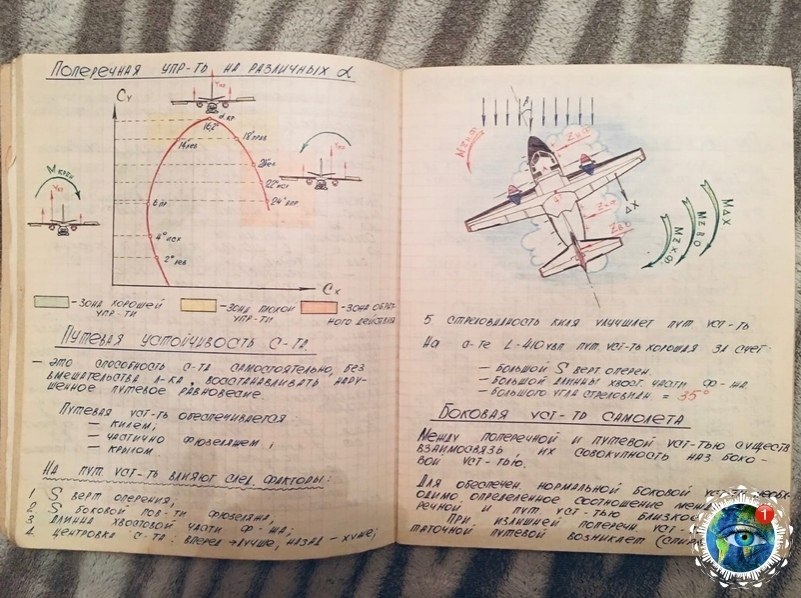 Поперечная упр-ть на различных α
Cy
Yкр
α кр
16,2°
14 лев
18° прав
Mкрен
Yкр
22° исх
24° пр
6 пр
4° исх
2° лев
Cx
- Зона хорошей упр-ти
- Зона плохой упр-ти
- Зона обрат-
ного действия
Путевая устойчивость с-та.
— это способность с-та самостоятельно, без
вмешательства л-ка, восстанавливать нару-
шенное путевое равновесие.
Путевая уст-ть обеспечивается:
— килем;
— частично фюзеляжем;
— крылом
На пут. уст-ть влияют след. факторы:
1 S верт оперения;
2 S боковой пов-ти фюзеляжа;
3 Длинна хвостовой части ф-жа;
4. Центровка с-та: вперед → лучше, назад - хуже;
ΔX
MΔX
5 Стреловидность киля улучшает пут. уст-ть
На с-те L-410 увп пут. уст-ть хорошая за счет:
— большой S верт оперен.
— большой длинны хвост. части ф-жа
— большого угла стреловидн = 35°
Боковая уст-ть самолета
Между поперечной и путевой уст-тью существ
взаимосвязь, их совокупность наз боко-
вой уст-тью.
Для обеспечен. нормальной боковой уст
одимо определенное соотношение
речной и пут уст-тью близкое
При излишней поперечн уст-
таточной путевой возникает (спир
1